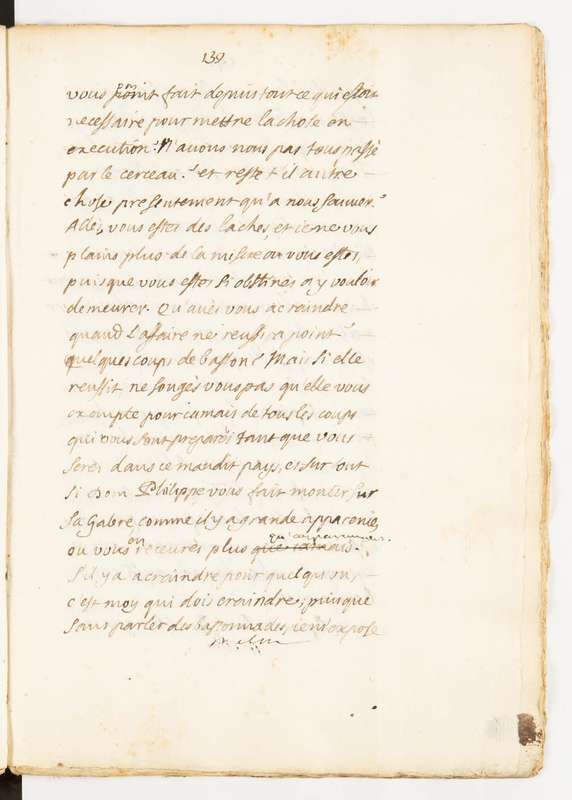 139.
vous point fait depuis tout ce qui estoit
necessaire pour mettre la chose en
execution? N'avons nous pas tous passé
par le cerceau? et reste t'il autre
chose presentement qu'a nous sauver?
Allés, vous estes des laches, et ie ne vous
plains plus de la misere ou vous estes,
puisque vous estes si obstinés a y vouloir
demeurer. Qu'avés vous a craindre
quand l'affaire ne reussira point?
quelques coups de baston? Mais si elle
reussit ne songés vous pas qu'elle vous
exempte pour iamais de tous les coups
qui vous sont preparés tant que vous
serés dans ce maudit pays, et sur tout
si Dom Philippe vous fait monter sur
sa Galere, comme il y a grande apparence,
ou vous en recevrés plus qu'auparavant.
S'il y a a craindre pour quelqu'un,
c'est moy qui dois craindre; puisque
sans parler des bastonnades, ie m'expose